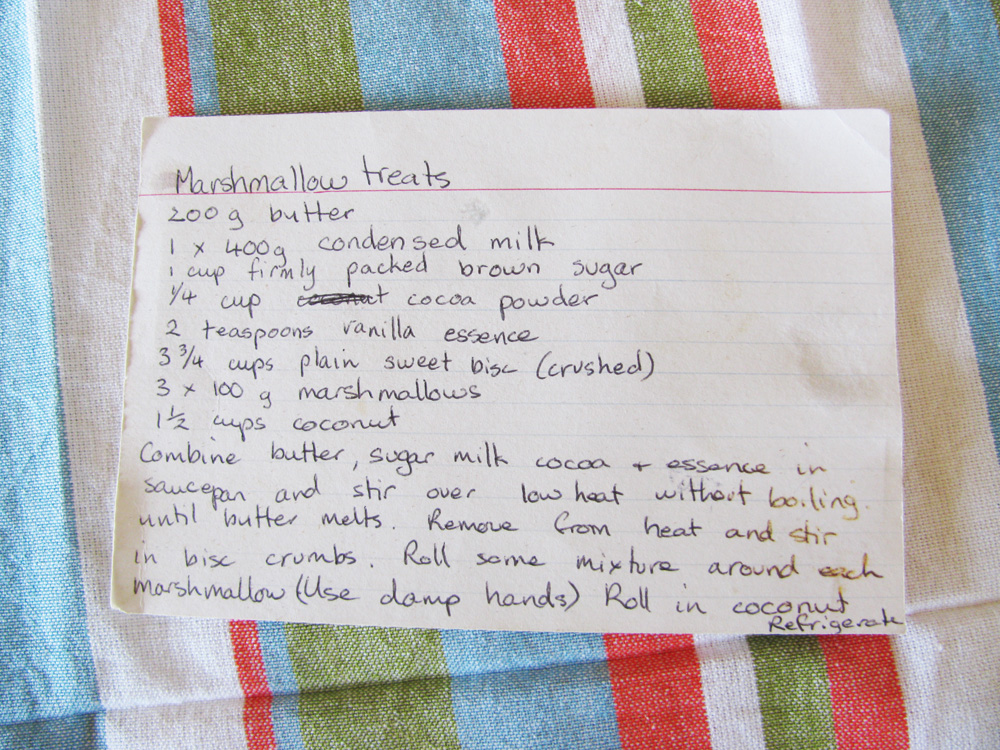 Marshmallow treats
200 g butter
1 x 400g condensed milk
1 cup firmly packed brown sugar
1/4 cup coconut cocoa powder
2 teaspoons vanilla essence
3 3/4 cups plain sweet bisc (crushed)
3 x 100 g marshmallows
1 1/2 cups coconut
Combine butter, sugar milk cocoa + essence in
saucepan and stir over low heat without boiling.
until butter melts. Remove from heat and stir
in bisc crumbs. Roll some mixture around each
marshmallow (Use damp hands) Roll in coconut
Refrigerate